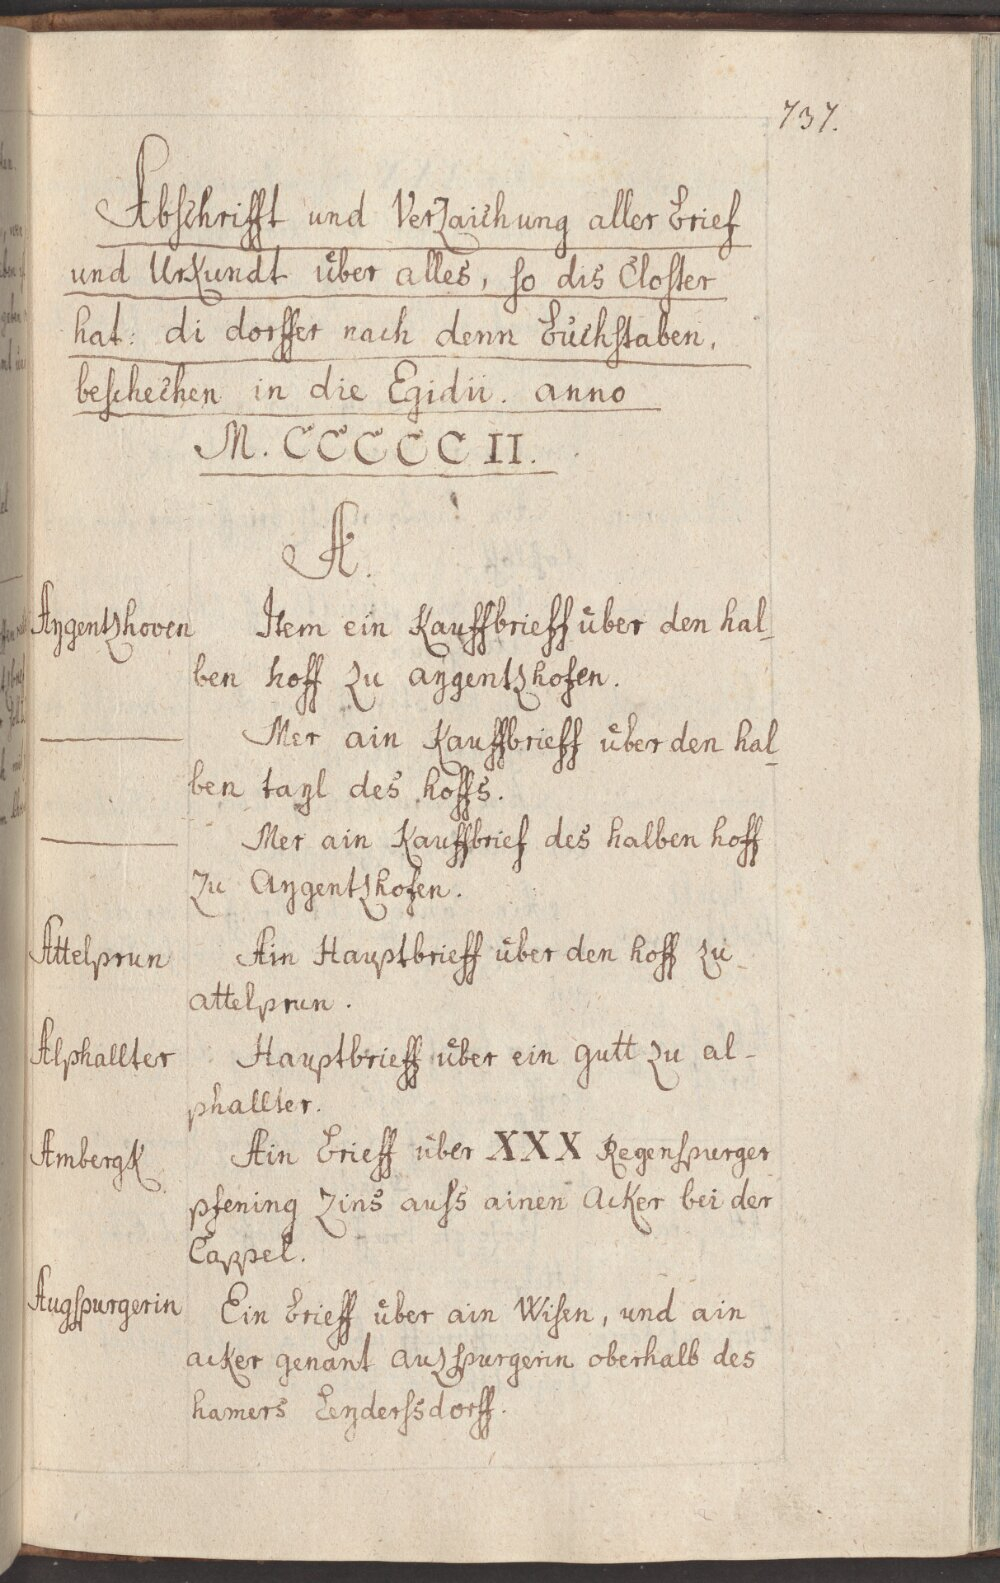 737.
Abschrifft und Verzaichung aller brief
und Urkundt über alles, so dis Closter
hat: di dorffer nach denn büchstaben,
beschechen in die Egidii. anno
M. CCCCC II.
A.
Aygentzhoven Item ein Kauffbrieff über den hal_
ben hoff zu aygentzhofen.
Mer ain Kauffbrieff über den hal_
ben tayl des hoffs.
Mer ain Kauffbrief des halben hoff
zu Aygentzhofen.
Attelprun Ain Hauptbrieff über den hoff zu_
attelprun.
Alphallter Hauptbrieff über ein gutt zu al-
phallter.
Ambergk Ain brieff über XXX Regenspurger
pfening zins auss ainen Acker bei der
Cappel.
Augspurgerin Ein brieff über ain Wisen, und ain
acker genant auzspurgerin oberhalb des
hamers Leyderssdorff.